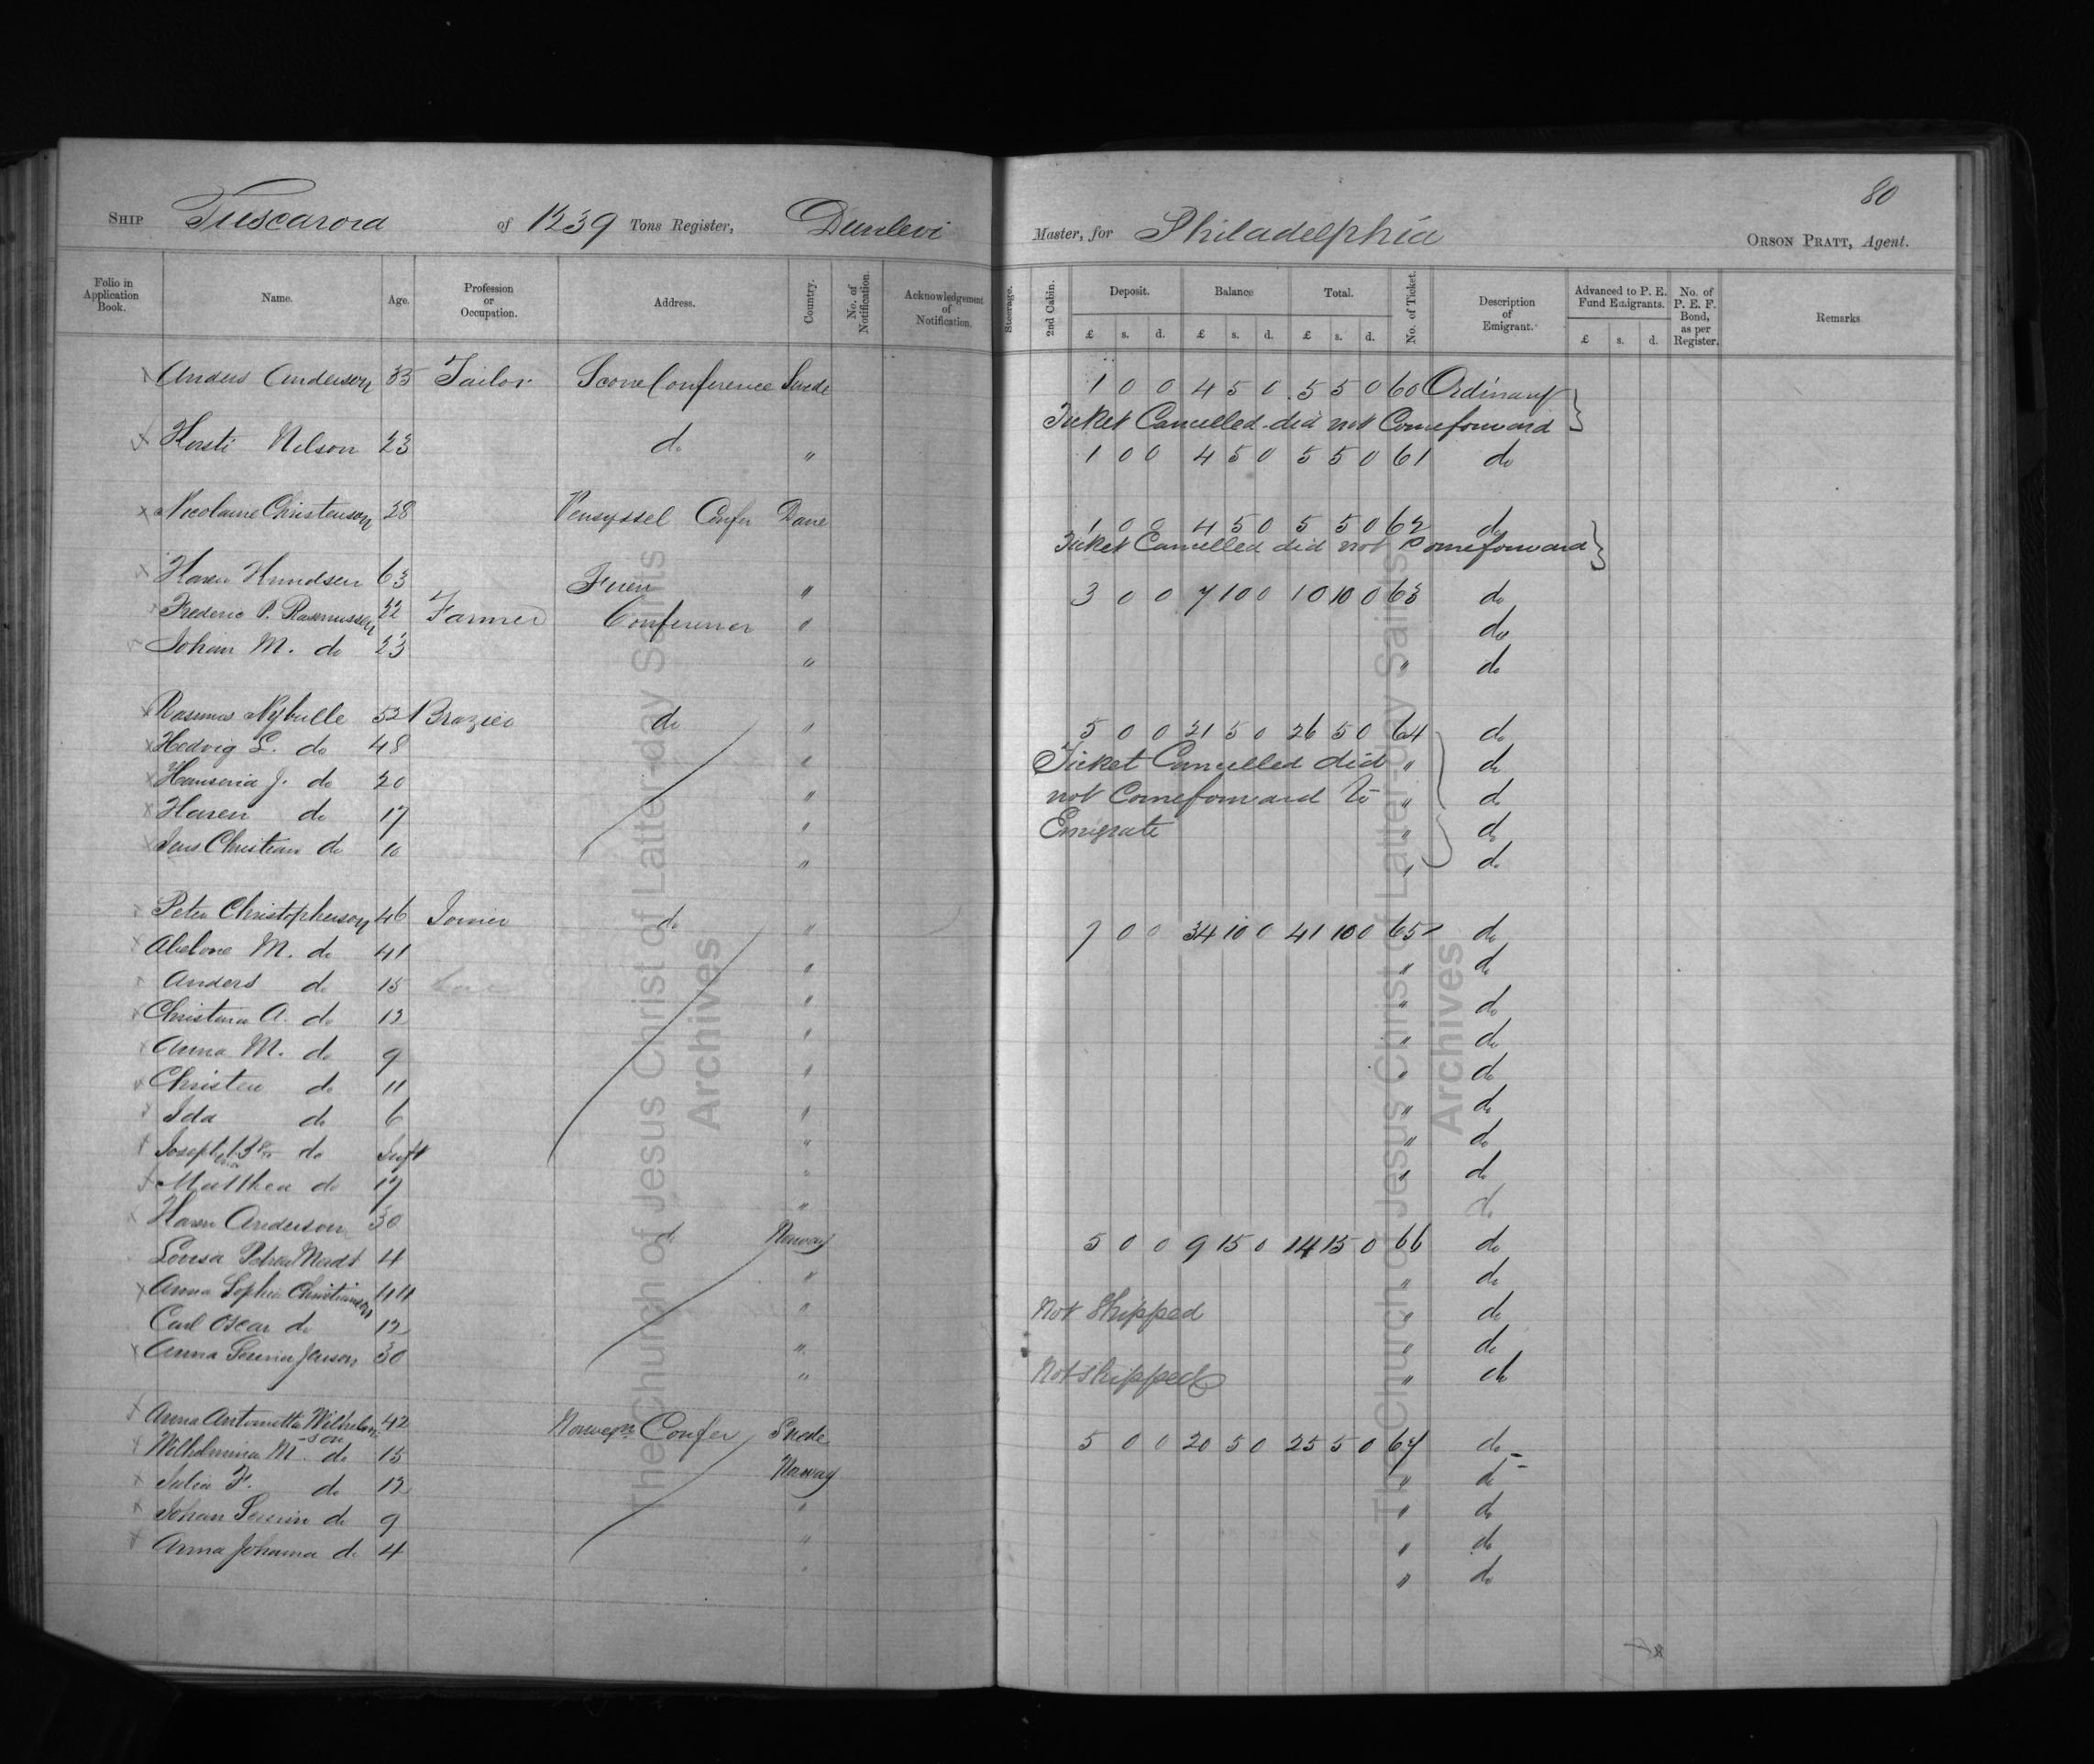 80
SHIP Tuscarora of 1239 Tons Register, Dunlevi Master, for Philadelphia ORSON PRATT, Agent.
Folio in Application Book. Name. Age. Profession or Occupation. Address. Country. No. of Notification. Acknowledgement of Notification. Steerage. 2nd Cabin. Deposit. Balance Total. No. of Ticket. Description of Emigrant. Advanced to P. E. Fund Emigrants. No. of P. E. F. Bond, as per Register. Remarks
£ s. d. £ s. d. £ s. d. £ s. d.
x Anders Anderson 35 Tailor Scone Conference Swede 1 0 0 4 5 0 5 5 0 60 Ordinary
Ticket Cancelled did not Comeforward
x Kersti Nelson 23 do " 1 0 0 4 5 0 5 5 0 61 do
x Nicolaine Christenson 28 Vensyssel Confer Dane 1 0 0 4 5 0 5 5 0 62 do
Ticket Cancelled did not Comeforward
x Karen Knudsen 63 Fuen " 3 0 0 7 10 0 10 10 0 63 do
Frederic P. Rasmussen 22 Farmer Conference " do
Johan M. do 23 " " do
x Rasmus Nyballe 52 Brazier do " 5 0 0 21 5 0 26 5 0 64 do
x Hedvig L. do 48 " Ticket Cancelled did " do
x Hansena J. do 20 " not Comeforward to " do
x Karen do 17 " Emigrate " do
x Jens Christian do 10 " " do
x Peter Christopherson 46 Joiner do " 7 0 0 34 10 0 41 10 0 65 do
x Abelone M. do 41 " " do
Anders do 15 " " do
x Christina A. do 12 " " do
x Anna M. do 9 " " do
x Christen do 11 " " do
x Ida do 6 " " do
x Joseph do Inft " " do
x Matthea do 17 " do
x Karen Anderson 30 do Norway 5 0 0 9 15 0 14 15 0 66 do
Lovisa Petrea 4 " " do
x Anna Sophia Christianson 44 " Not Shipped " do
Carl Oscar do 12 " " do
x Anna Jenson 30 " Not shipped " do
x Anna Antonetta Wilhelmson 42 Norwegn Confer Swede 5 0 0 20 5 0 25 5 0 67 do
x Wilhelmina M. do 15 Norway " do
x Julia F. do 12 " " do
x Johan do 9 " " do
x Anna Johanna do 4 " " do
The Church of Jesus Christ of Latter-day Saints
Archives
The Church of Jesus Christ of Latter-day Saints
Archives